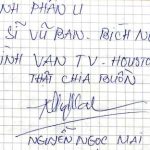 INH PHÂN Ư
SĨ VŨ BAN. BÍCH N
ÌNH VAN TV - HOUSTO
THẬT CHIA BUỒN
NGUYỄN NGỌC MAI